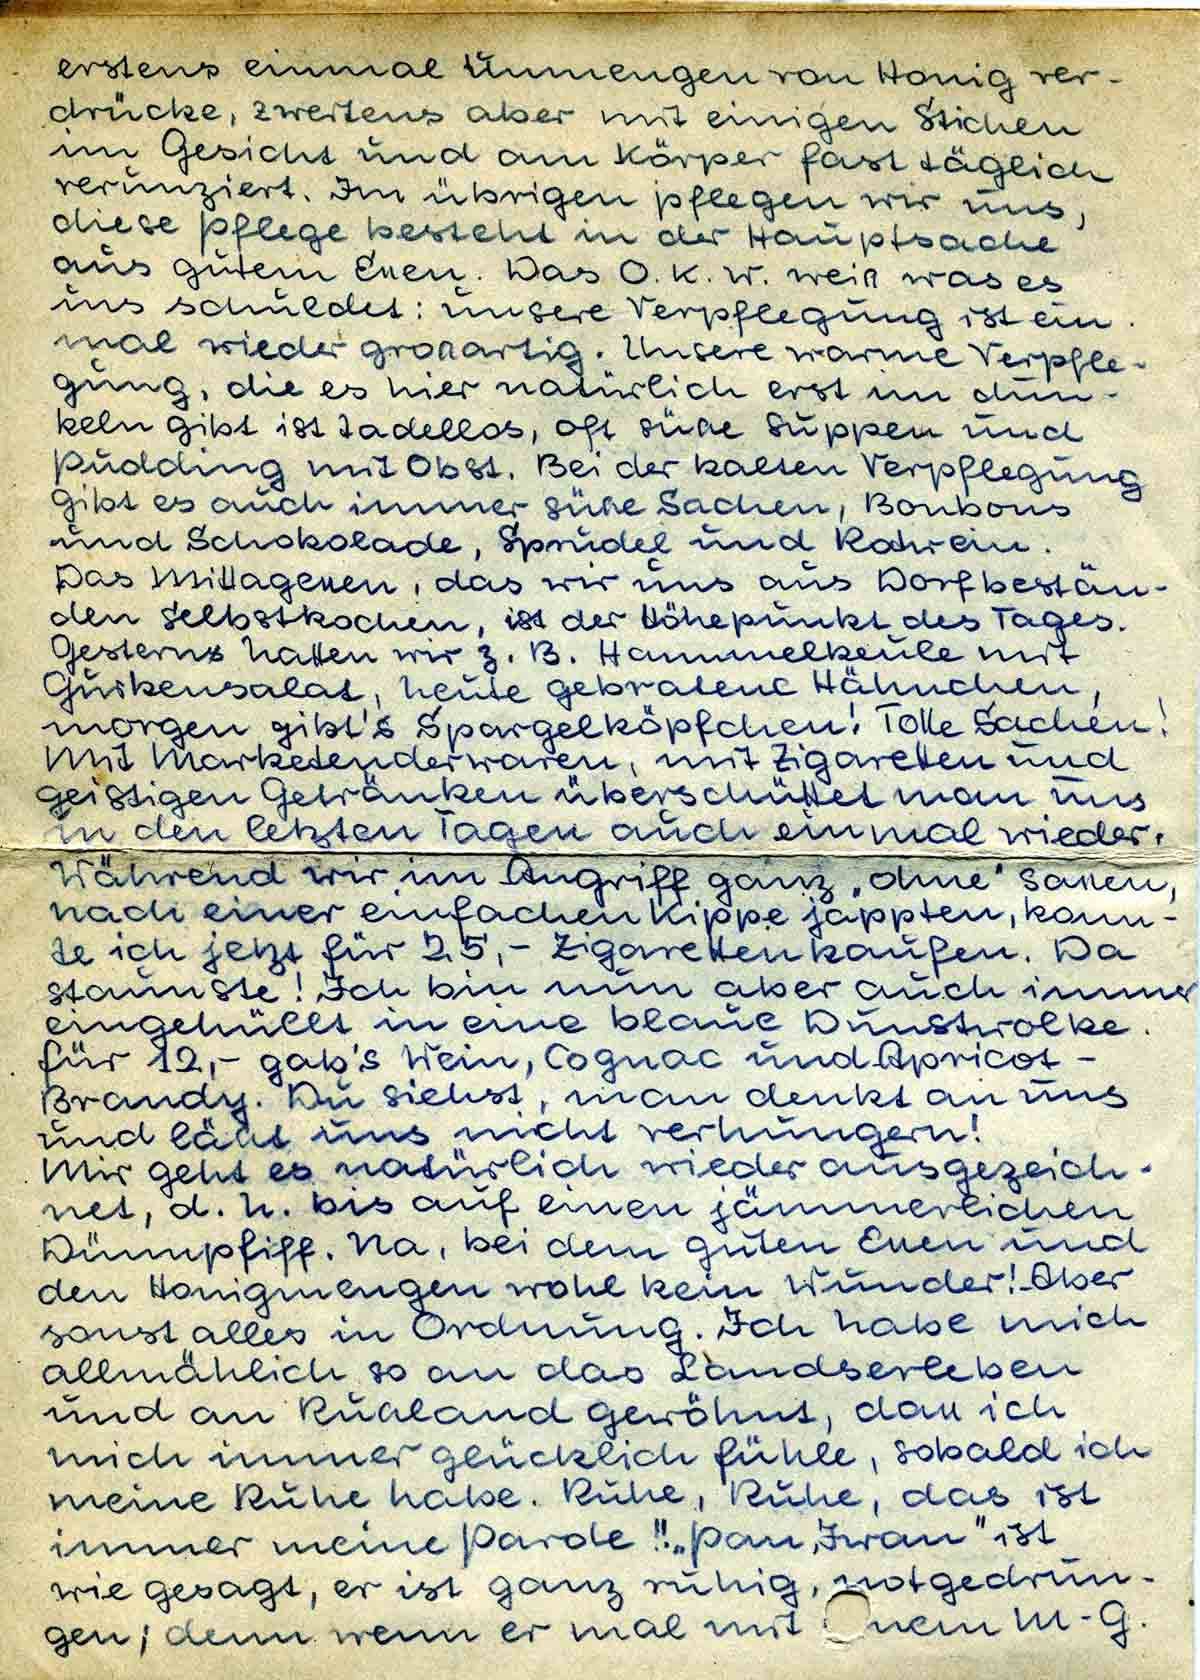 erstens einmal Unmengen von Honig ver-
drücke, zweitens aber mit einigen Stichen
im Gesicht und am Körper fast täglich
verunziert. Im übrigen pflegen wir uns,
diese Pflege besteht in der Hauptsache
aus gutem Essen. Das O.K.W. weiß was es
uns schuldet: unsere Verpflegung ist ein
mal wieder großartig. Unsere warme Verpfle-
gung, die es hier natürlich erst im dun-
keln gibt ist tadellos, oft süße Suppen und
Pudding mit Obst. Bei der kalten Verpflegung
gibt es auch immer süße Sachen, Bonbons
und Schokolade, Sprudel und Rotwein.
Das Mittagessen, das wir uns aus Dorfbestän-
den selbstkochen, ist der Höhepunkt des Tages.
Gestern hatten wir z. B. Hammelkeule mit
Gurkensalat, heute gebratene Hähnchen,
morgen gibt's Spargelköpfchen! Tolle Sachen!
Mit Marketenderwaren, mit Zigaretten und
geistigen Getränken überschüttet man uns
in den letzten Tagen auch einmal wieder.
Während wir im Angriff ganz „ohne" sassen,
nach einer einfachen Kippe jappten, konn-
te ich jetzt für 25,- Zigaretten kaufen. Da
staunste! Ich bin nun aber auch immer
eingehüllt in eine blaue Dunstwolke.
für 12,- gab's Wein, Cognac und Apricot-
Brandy. Du siehst, man denkt an uns
und läßt uns nicht verhungern!
Mir geht es natürlich wieder ausgezeich-
net, d. h. bis auf einen jämmerlichen
Dünnpfiff. Na, bei dem guten Essen und
den Honigmengen wohl kein Wunder! Aber
sonst alles in Ordnung. Ich habe mich
allmählich so an das Landserleben
und an Rußland gewöhnt, dass ich
mich immer glücklich fühle, sobald ich
meine Ruhe habe. Ruhe, Ruhe, das ist
immer meine Parole!! „Pan Iwan" ist
wie gesagt, er ist ganz ruhig, notgedrun-
gen; denn wenn er mal mit nem M-G.